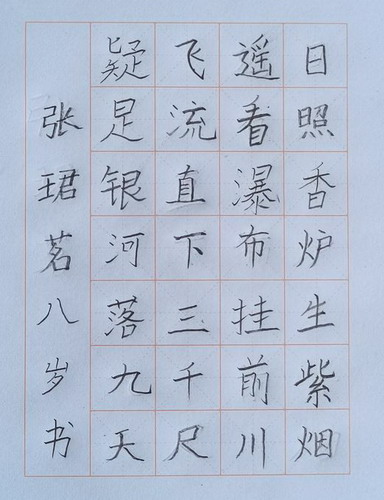 日照香炉生紫烟
遥看瀑布挂前川
飞流直下三千尺
疑是银河落九天
张珺茗八岁书